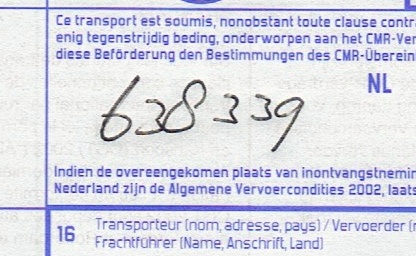 Ce transport est soumis, nonobstant toute clause contr
enig tegenstrijdig beding, onderworpen aan het CMR-Ver
diese Beförderung den Bestimmungen des CMR-Überein
NL
638339
Indien de overeengekomen plaats van inontvangstnemin
Nederland zijn de Algemene Vervoercondities 2002, laats
16 Transporteur (nom, adresse, pays) / Vervoerder (
Frachtführer (Name, Anschrift, Land)